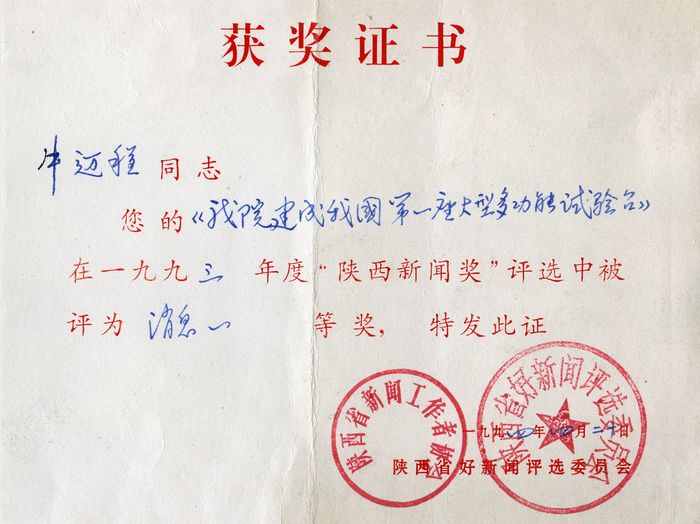 获奖证书
牛迈程同志
您的《我院建成我国第一座大型多功能试验台》
在一九九三年度“陕西新闻奖”评选中被
评为消息一等奖，特发此证
陕西省新闻工作者协会
陕西省好新闻评选委员会
一九九四年四月二十日
陕西省好新闻评选委员会